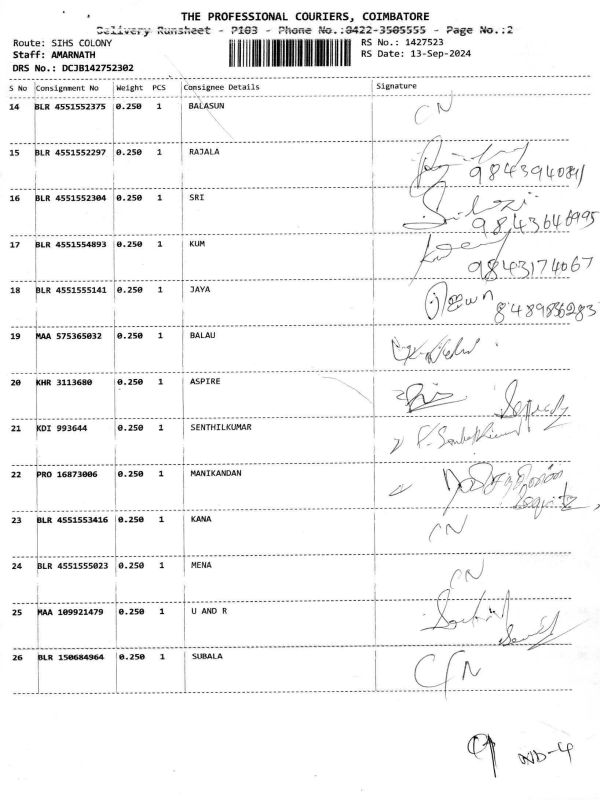 THE PROFESSIONAL COURIERS, COIMBATORE
Delivery Runsheet - P103 - Phone No.:0422-3505555 - Page No.:2
Route: SIHS COLONY RS No.: 1427523
Staff: AMARNATH RS Date: 13-Sep-2024
DRS No.: DCJB142752302
S No Consignment No Weight PCS Consignee Details Signature
14 BLR 4551552375 0.250 1 BALASUN CN
15 BLR 4551552297 0.250 1 RAJALA
9843940841
16 BLR 4551552304 0.250 1 SRI
9843646995
17 BLR 4551554893 0.250 1 KUM
9843174067
18 BLR 4551555141 0.250 1 JAYA
19 MAA 575365032 0.250 1 BALAU
20 KHR 3113680 0.250 1 ASPIRE
21 KDI 993644 0.250 1 SENTHILKUMAR
22 PRO 16873006 0.250 1 MANIKANDAN
23 BLR 4551553416 0.250 1 KANA CN
24 BLR 4551555023 0.250 1 MENA CN
25 MAA 109921479 0.250 1 U AND R
26 BLR 150684964 0.250 1 SUBALA
ND-4